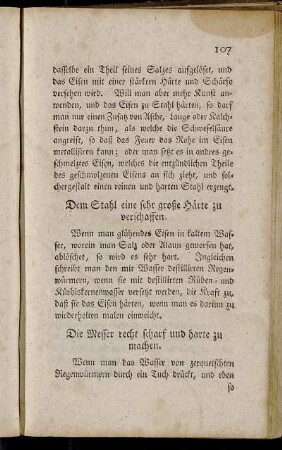 107
dasselbe ein Theil seines Salzes aufgelöset, und
das Eisen mit einer stärkern Härte und Schärfe
versehen wird. Will man aber mehr Kunst an-
wenden, und das Eisen zu Stahl härten, so darf
man nur einen Zusatz von Asche, Lauge oder Kalch-
stein darzu thun, als welche die Schwefelsäure
angreift, so daß das Feuer das Rohe im Eisen
metallisiren kann; oder man setzt es in andres ge-
schmelztes Eisen, welches die entzündlichen Theile
des geschmolzenen Eisens an sich zieht, und sol-
chergestalt einen reinen und harten Stahl erzeugt.
Dem Stahl eine sehr große Härte zu
verschaffen.
Wenn man glühendes Eisen in kaltem Was-
ser, worein man Salz oder Alaun geworfen hat,
ablöschet, so wird es sehr hart. Ingleichen
schreibt man den mit Wasser destillirten Regen-
würmern, wenn sie mit destillirten Rüben- und
Kürbiskernenwasser versetzt werden, die Kraft zu,
daß sie das Eisen härten, wenn man es darinn zu
wiederholten malen einweicht.
Die Messer recht scharf und harte zu
machen.
Wenn man das Wasser von zerquetschten
Regenwürmern durch ein Tuch drückt, und eben
so